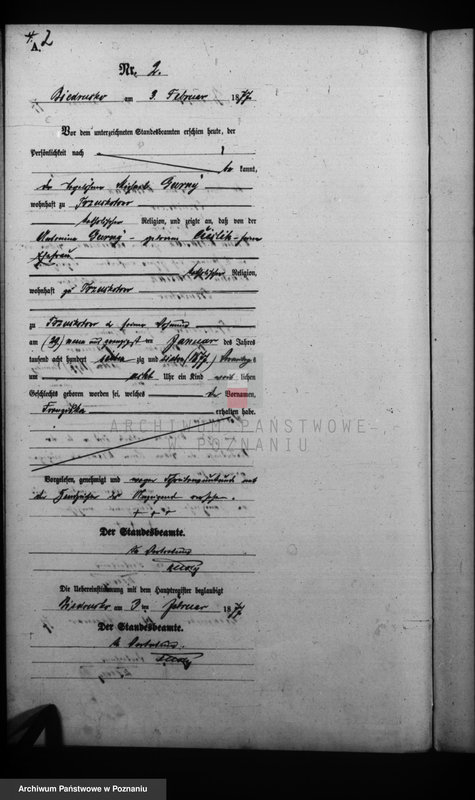 A. 2
Nr. 2.
Biedrusko am 3. Februar 1877.
Vor dem unterzeichneten Standesbeamten erschien heute, der
Persönlichkeit nach
kannt,
der Tagelöhner Michael
wohnhaft zu
katholischer Religion, und zeigte an, daß von der
geborenen
Ehefrau
katholischer Religion,
wohnhaft zu
zu in seiner Wohnung
am (29) neun und zwanzigsten Januar des Jahres
tausend acht hundert sieben zig und sieben (1877) Vormittags
um acht Uhr ein Kind weiblichen
Geschlechts geboren worden sei, welches den Vornamen,
Franziska erhalten habe.
Vorgelesen, genehmigt und wegen mit
den Handzeichen des versehen.
+ + +
Der Standesbeamte.
In Vertretung
Die Uebereinstimmung mit dem Hauptregister beglaubigt
Biedrusko am 3 ten Februar 1877.
Der Standesbeamte.
In Vertretung
ARCHIWUM PAŃSTWOWE
W POZNANIU
Archiwum Państwowe w Poznaniu